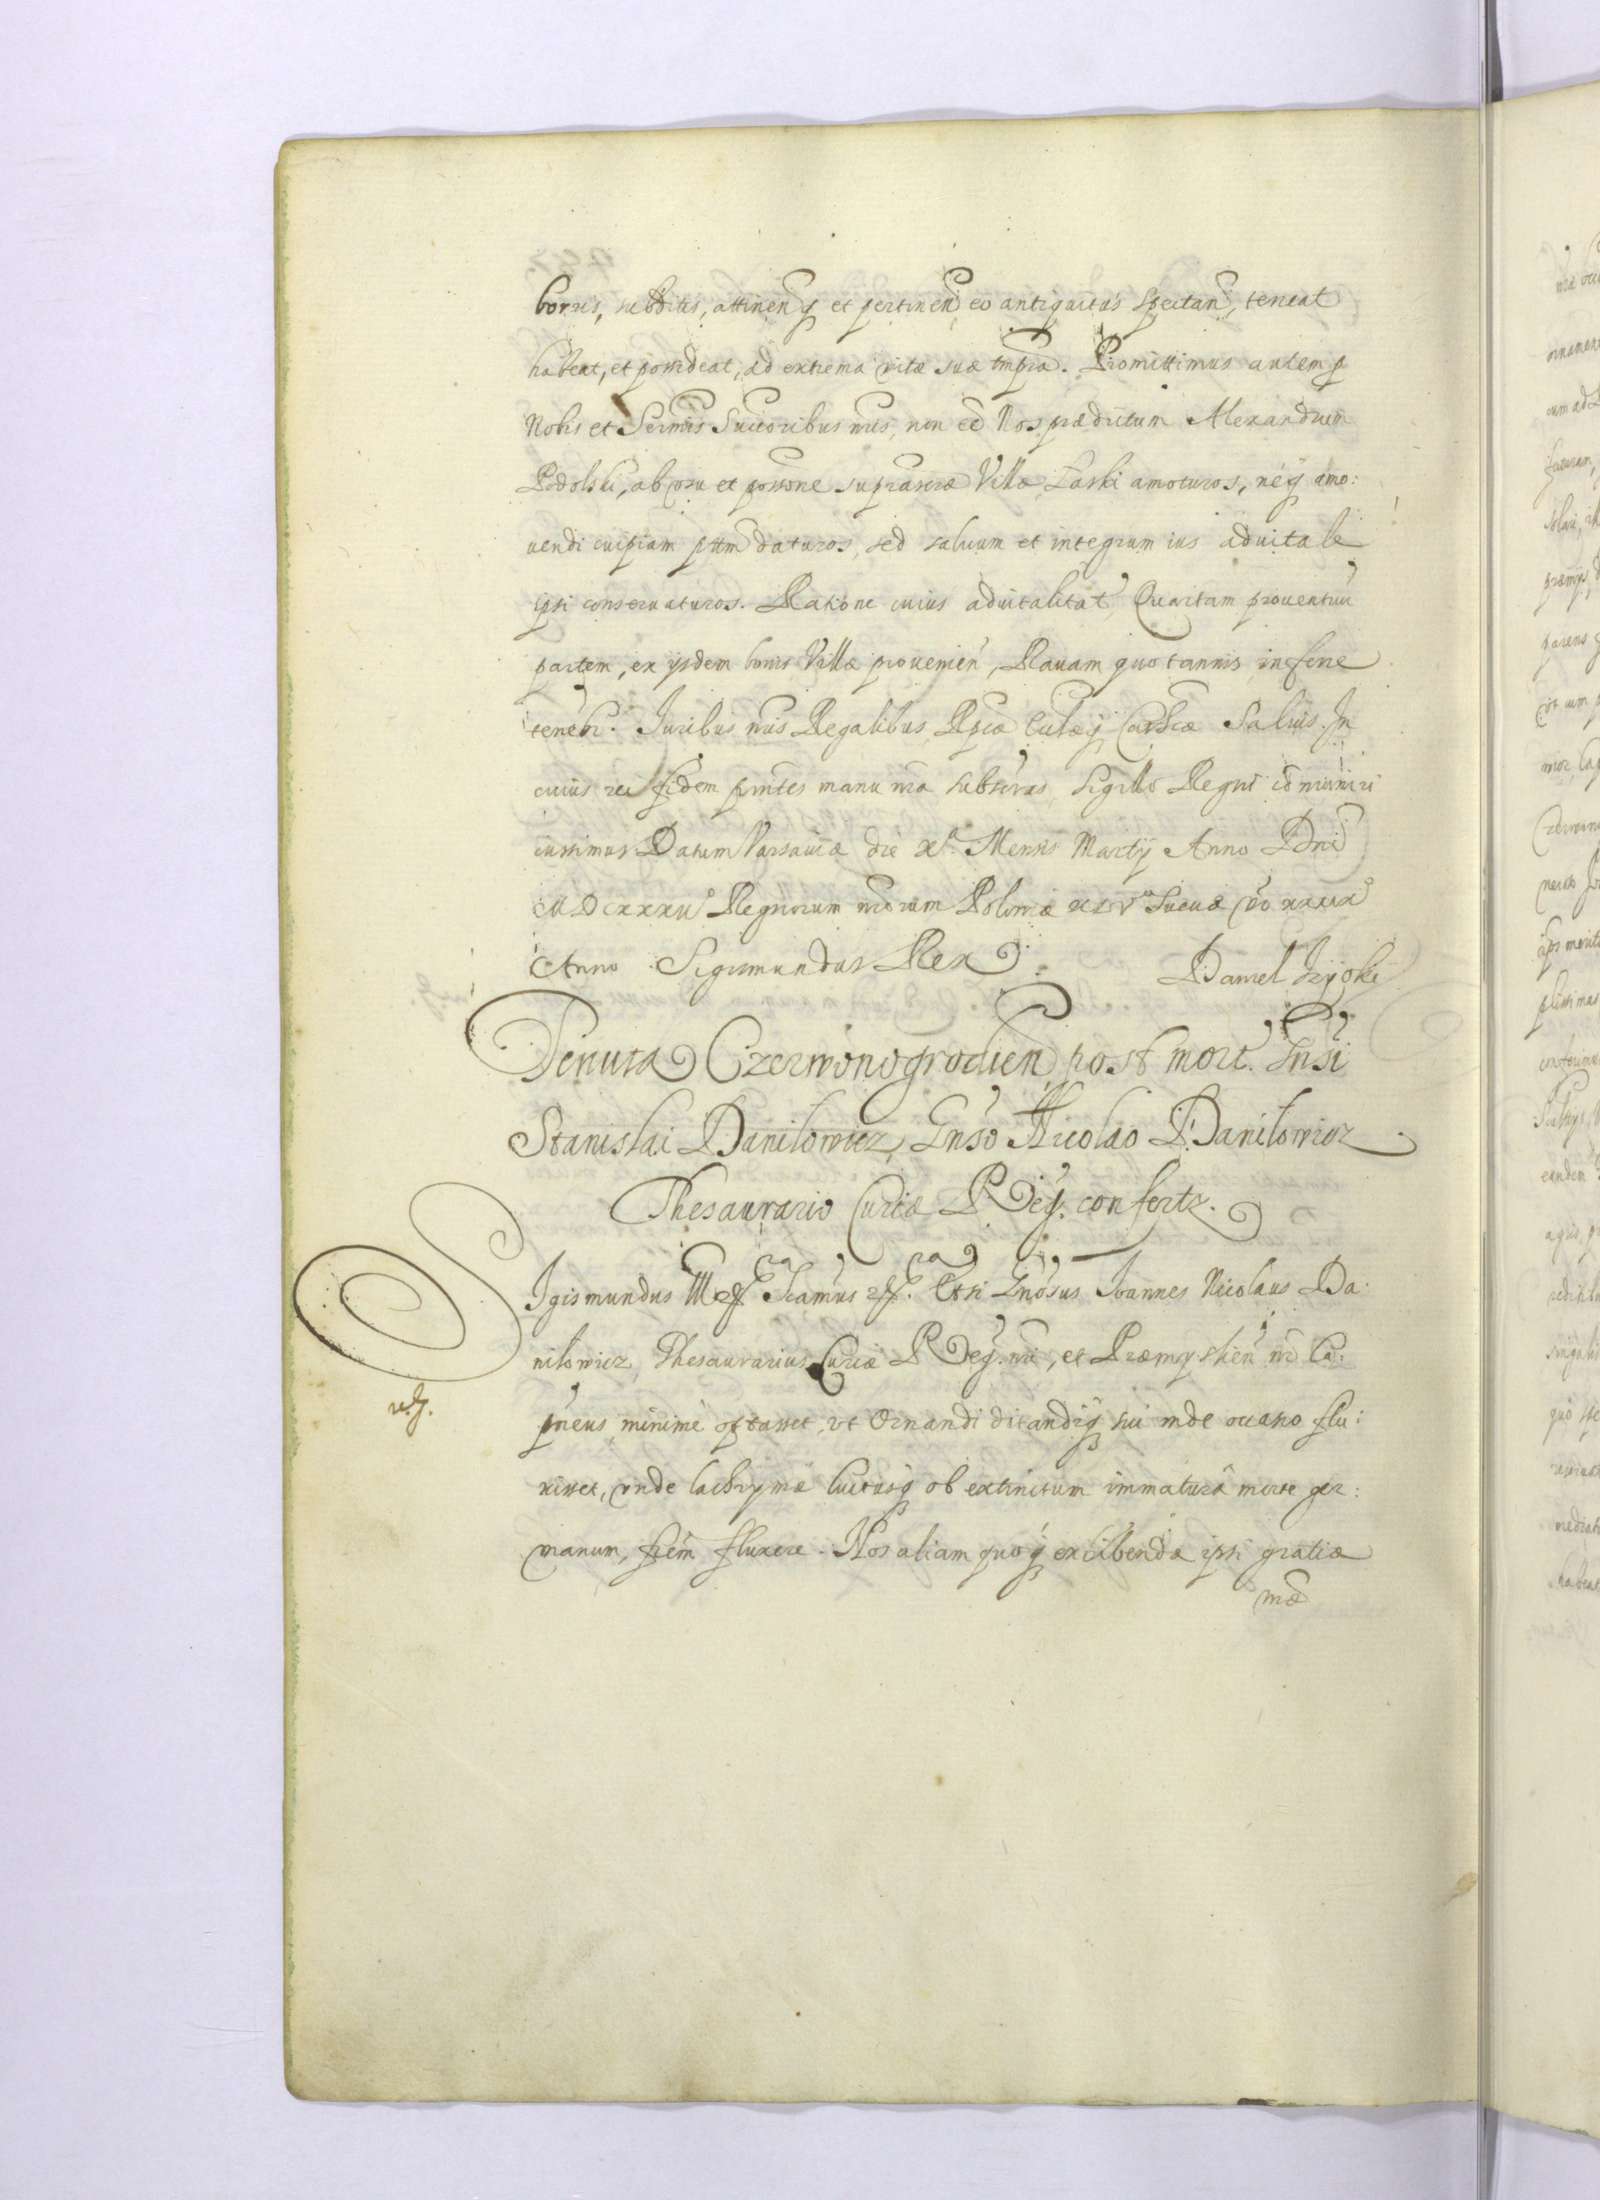 borris, subditis, attinen q et pertinen eo antiquitus spectan, teneat
habeat, et possideat, ad extrema vitæ suæ tmpra. Promittimus autem p
Nobis et Sermis Succoribus nris, non ee Nos prædictum Alexandrum
Podolski, ab vsu et possone suprascræ Villæ Laski amoturos, neq amo:
uendi cuipiam pttm daturos, sed saluum et integrum ius aduitale
ipsi conseruaturos. Ratione cuius aduitalitat Quartam prouentuu
partem, ex ijsdem bonis Villæ prouenien, Rauam quotannis inferre
tenebr. Juribus nris Regalibus Rpcæ Ecclæq Carhcæ Saluis. In
cuius rei fidem pnntes manu nra subscras, Sigillo Regni comuniri
iussimus. Datum Varsauiæ die X.a Mensis Martij Anno Dni
MDCXXXII Regnorum nrorum Poloniæ XLV Sueciæ vo XXXIX
Anno Sigismundus Rex Daniel Izijcki
Tenuta Czerwonogrodien post mort. Gnsi
Stanislai Danilowicz, Gnso Nicolao Danilowicz
Thesaurario Curiæ Reg. confertr.
Sigismundus III etc Scamus etc. Etsi Gnosus Joannes Nicolaus Da:
nilowicz, Thesaurarius Curiæ Reg. nri, et Præmyslien nr Ca:
pneus minimè optasset, vt Ornandi ditandiq sui inde occasio flu:
xisset, vnde lachrymæ luctusq ob extinctum immaturâ morte ger:
manum, frem fluxere. Nos aliam quoq exhibendæ ipsi gratiæ